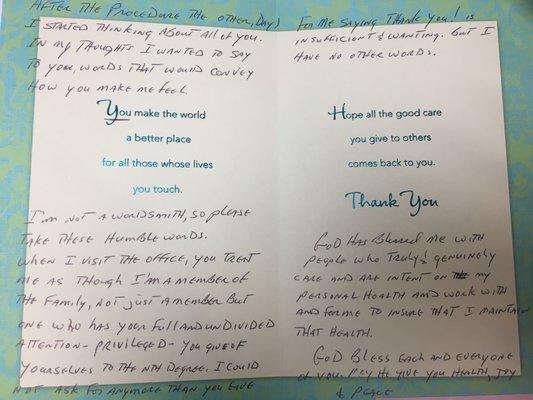 AFTER THE PROCEDURE THE OTHER DAY,
I STARTED THINKING ABOUT ALL OF YOU.
IN MY THOUGHTS I WANTED TO SAY
TO YOU, WORDS THAT WOULD CONVEY
HOW YOU MAKE ME FEEL.
You make the world
a better place
for all those whose lives
you touch.
I'M NOT A WORDSMITH, SO PLEASE
TAKE THESE HUMBLE WORDS.
WHEN I VISIT THE OFFICE, YOU TREAT
ME AS THOUGH I'M A MEMBER OF
THE FAMILY, NOT JUST A MEMBER BUT
ONE WHO HAS YOUR FULL AND UNDIVIDED
ATTENTION - PRIVILEGED - YOU GIVE OF
YOURSELVES TO THE NTH DEGREE. I COULD
NOT ASK FOR ANYMORE THAN YOU GIVE
FOR ME SAYING THANK YOU! IS
INSUFFICIENT & WANTING. BUT I
HAVE NO OTHER WORDS.
Hope all the good care
you give to others
comes back to you.
Thank You
GOD HAS BLESSED ME WITH
PEOPLE WHO TRULY & GENUINELY
CARE AND ARE INTENT ON MY
PERSONAL HEALTH AND WORK WITH
AND FOR ME TO INSURE THAT I MAINTAIN
THAT HEALTH.
GOD BLESS EACH AND EVERYONE
OF YOU. MAY HE GIVE YOU HEALTH, JOY
& PEACE